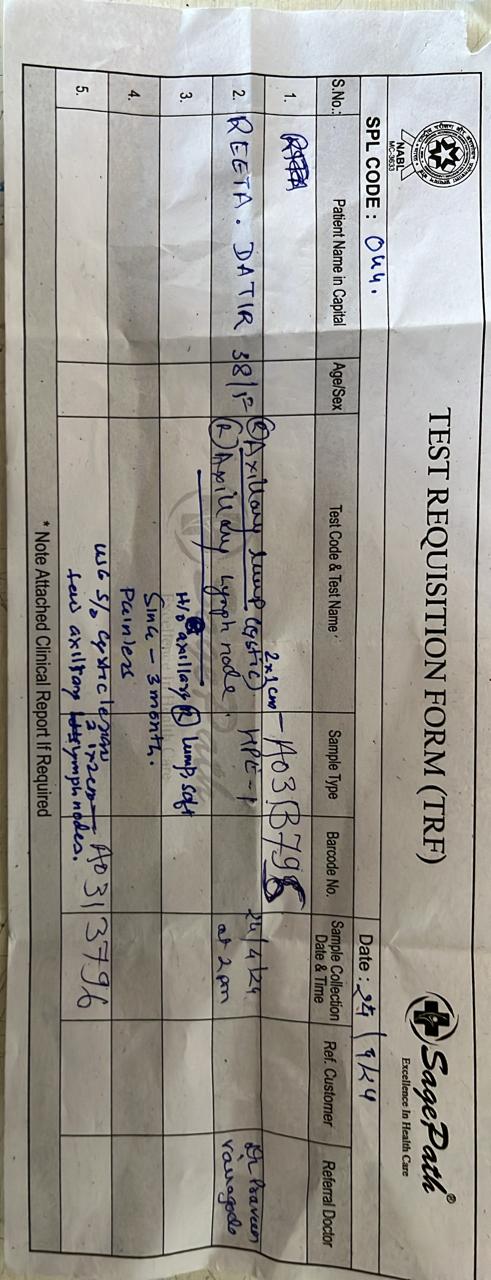 NABL
MC-3633
TEST REQUISITION FORM (TRF)
SagePath®
Excellence In Health Care
SPL CODE : 044.
Date : 24/4/24
S.No.: Patient Name in Capital Age/Sex Test Code & Test Name Sample Type Barcode No. Sample Collection Date & Time Ref. Customer Referral Doctor
1. (R) Axillary lump (cystic) 2x1cm - A0313796
2. REETA. DATIR 38/F (R) Axillary Lymph node. HPE-1 24/4/24 at 2pm Dr Praveen
3. H/o axillary (R) lump, soft
Since - 3 month.
4. Painless
5. USG S/o cystic lesion
1x2cm — A0313796
few axillary lymph nodes.
* Note Attached Clinical Report If Required